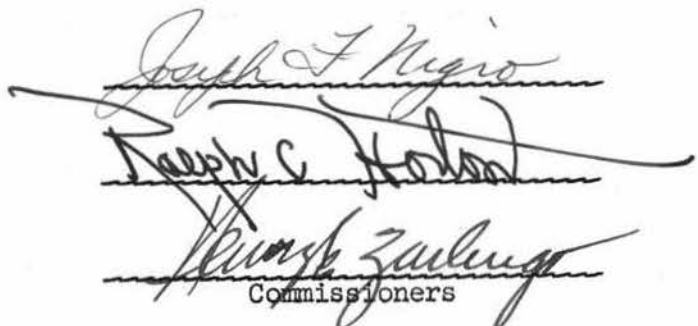 Joseph F Nigro
Ralph C Horton
Henry E Zarlengo
Commissioners